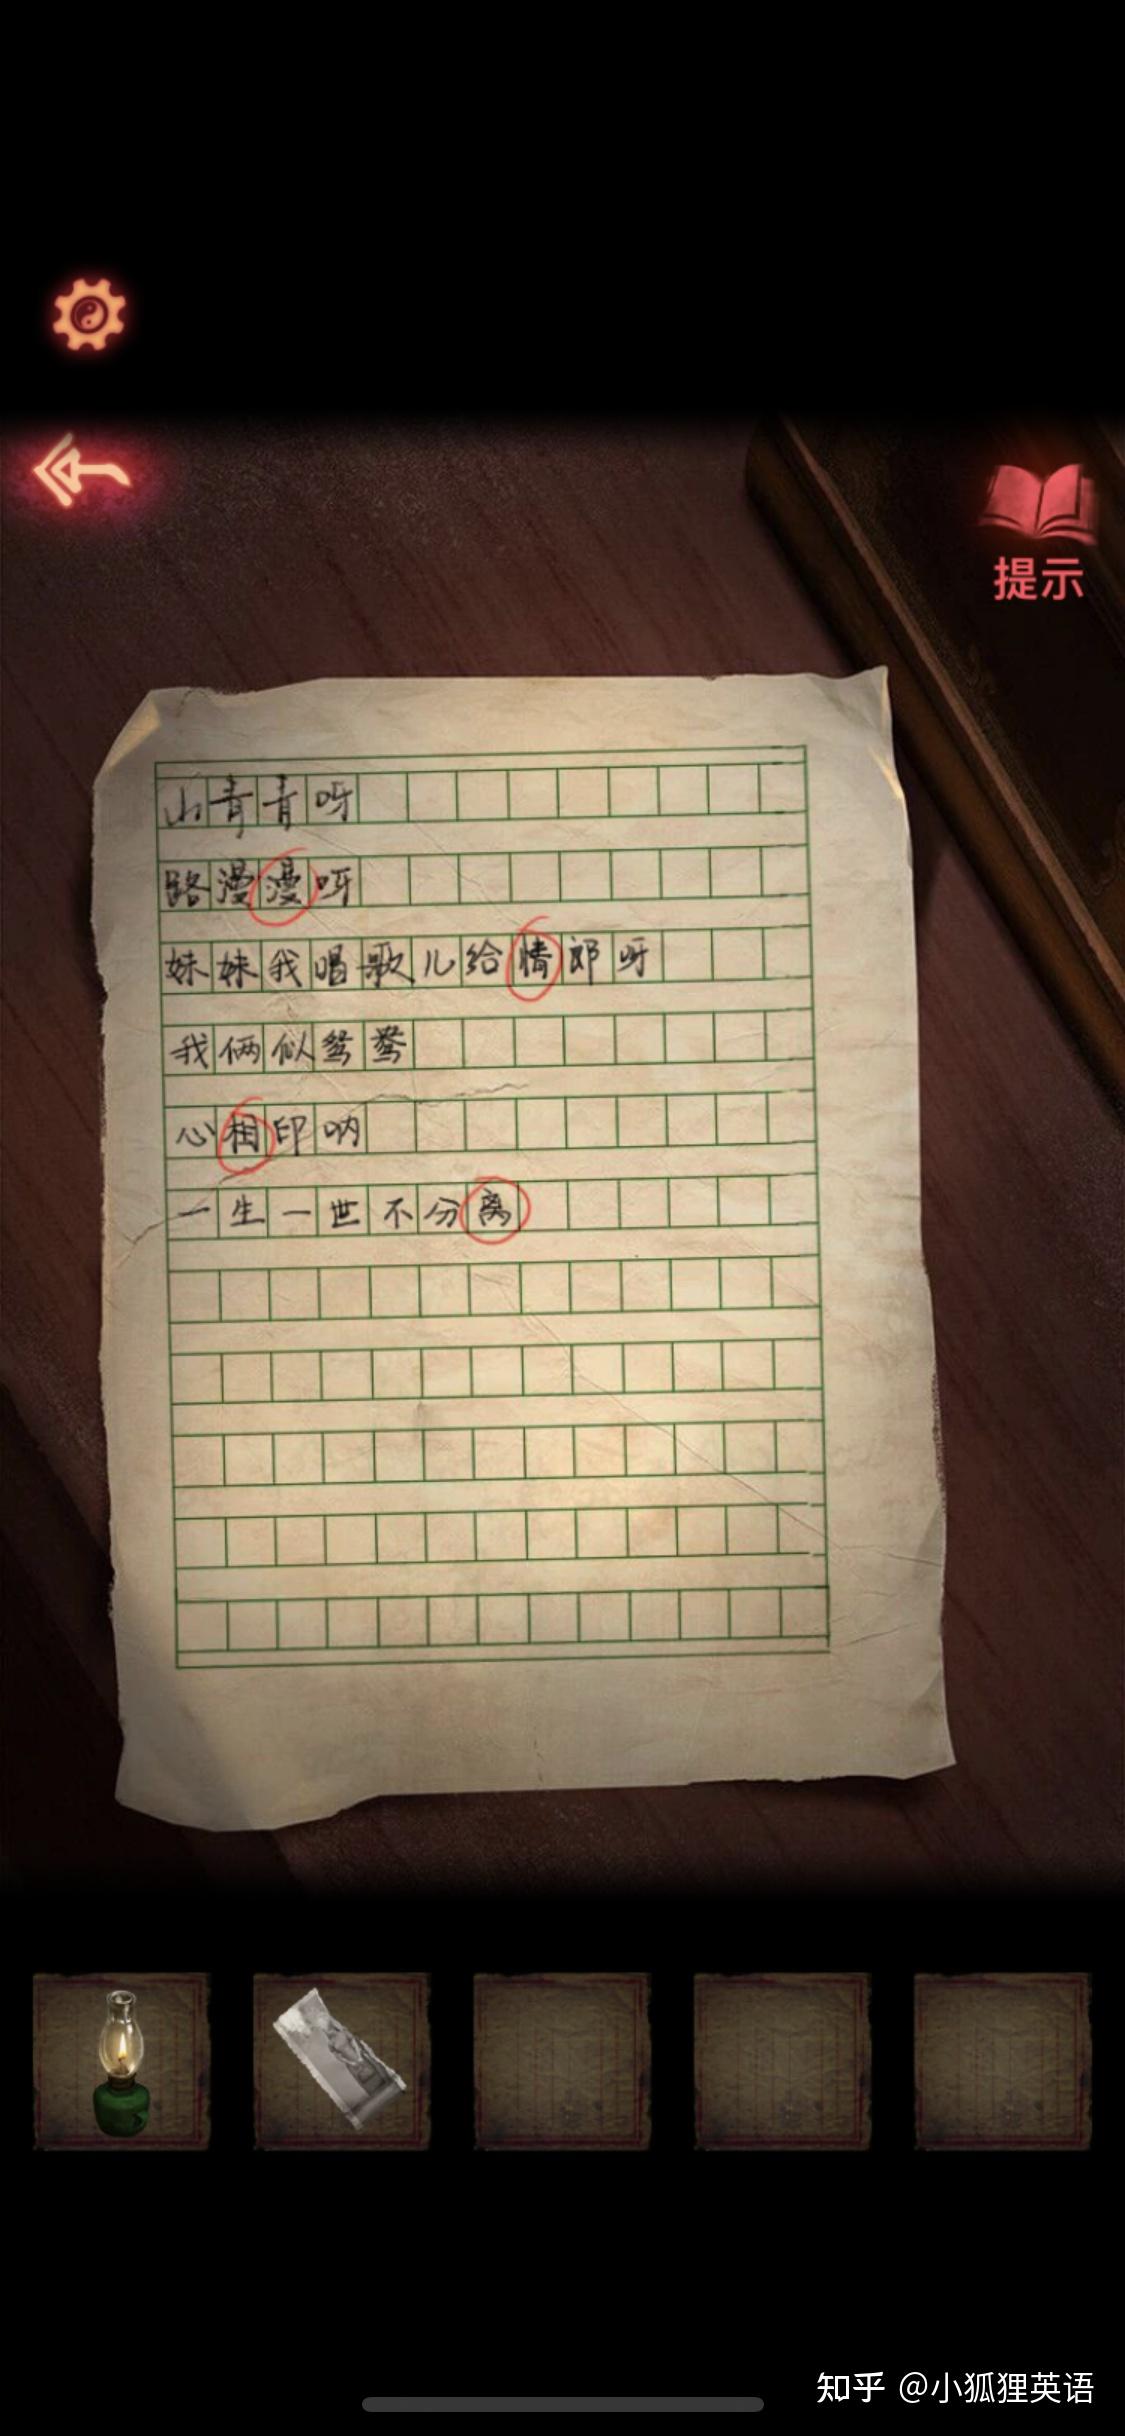 提示
山青青呀
路漫漫呀
妹妹我唱歌儿给情郎呀
我俩似鸳鸯
心相印呐
一生一世不分离
知乎 @小狐狸英语